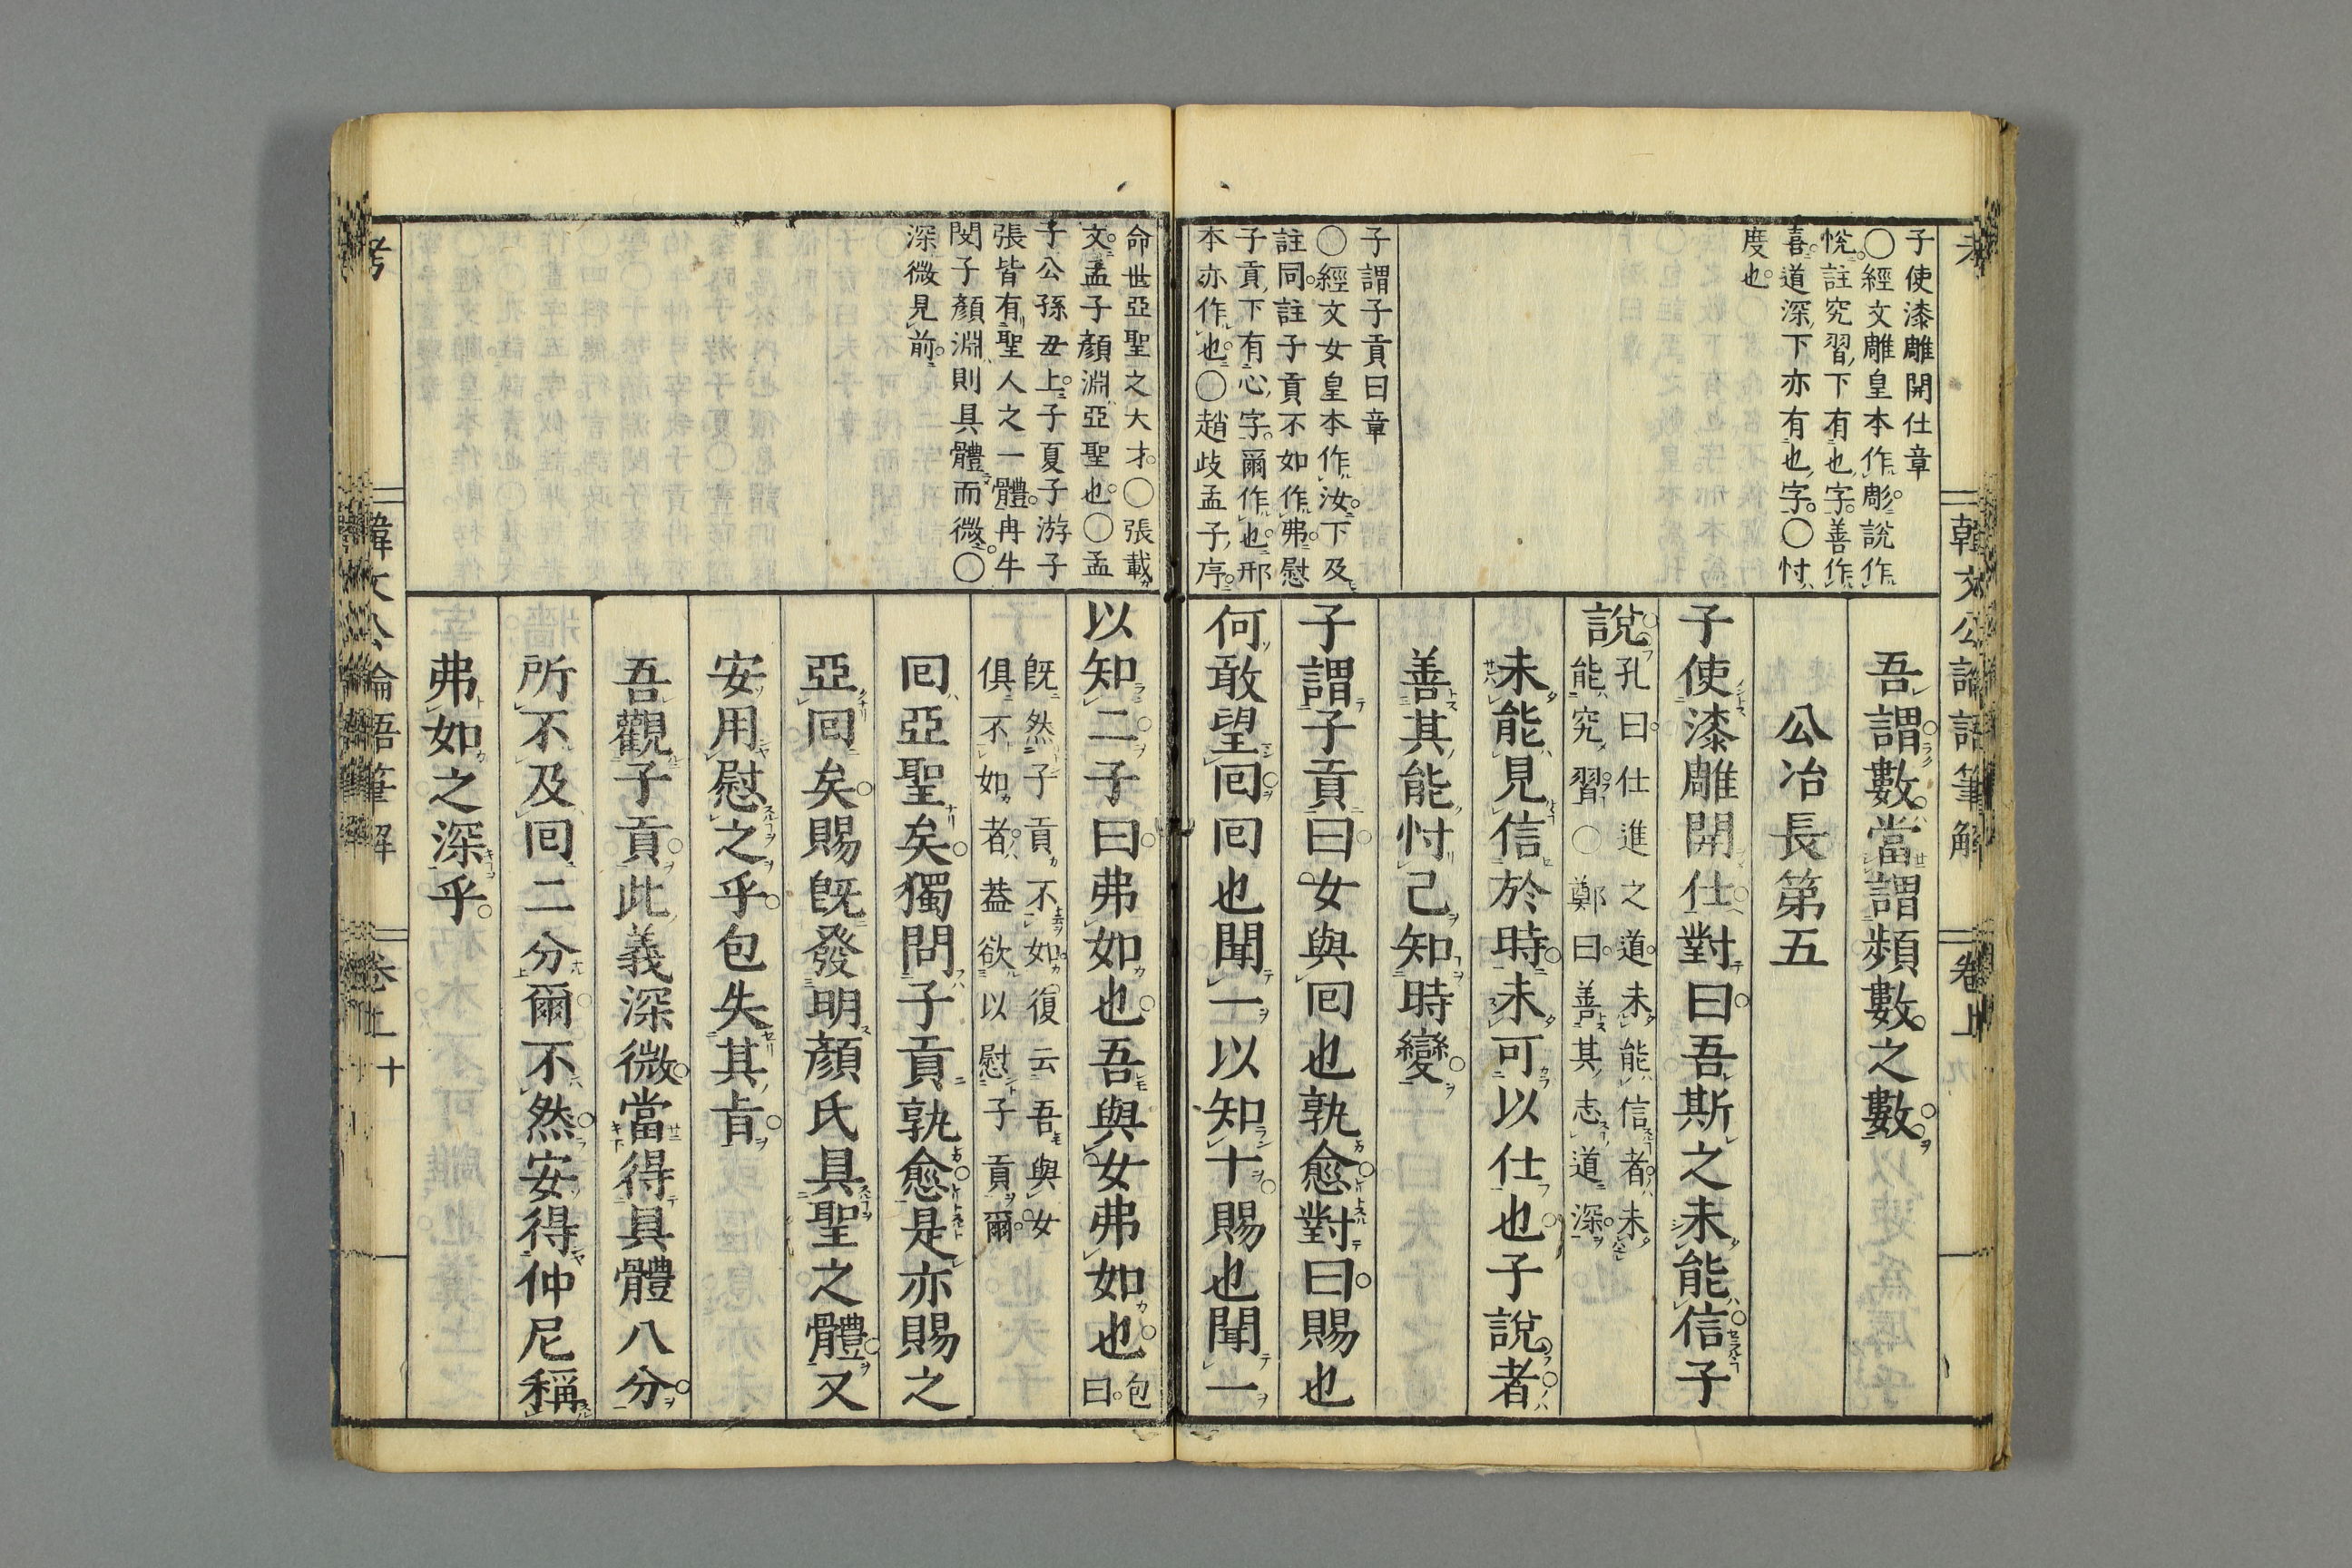 子使漆雕開仕章
○經文雕皇本作彫說作
悅註究習下有也字善作
喜道深下亦有也字○忖
度也
子謂子貢曰章
○經文女皇本作汝下及
註同註子貢不如作弗慰
子貢下有心字爾作也邢
本亦作也○趙歧孟子序
吾謂數當謂頻數之數
公冶長第五
子使漆雕開仕對曰吾斯之未能信子
說孔曰仕進之道未能信者未
能究習○鄭曰善其志道深
未能見信於時未可以仕也子說者
善其能忖己知時變
子謂子貢曰女與回也孰愈對曰賜也
何敢望回回也聞一以知十賜也聞一
韓文公論語筆解 卷上 九
命世亞聖之大才○張載
文孟子顏淵亞聖也○孟
子公孫丑上子夏子游子
張皆有聖人之一體冉牛
閔子顏淵則具體而微○
深微見前
以知二子曰弗如也吾與女弗如也包
曰
既然子貢不如復云吾與女
俱不如者葢欲以慰子貢爾
回亞聖矣獨問子貢孰愈是亦賜之
亞回矣賜既發明顏氏具聖之體又
安用慰之乎包失其旨
吾觀子貢此義深微當得具體八分
所不及回二分爾不然安得仲尼稱
弗如之深乎
考 韓文公論語筆解 卷上 十